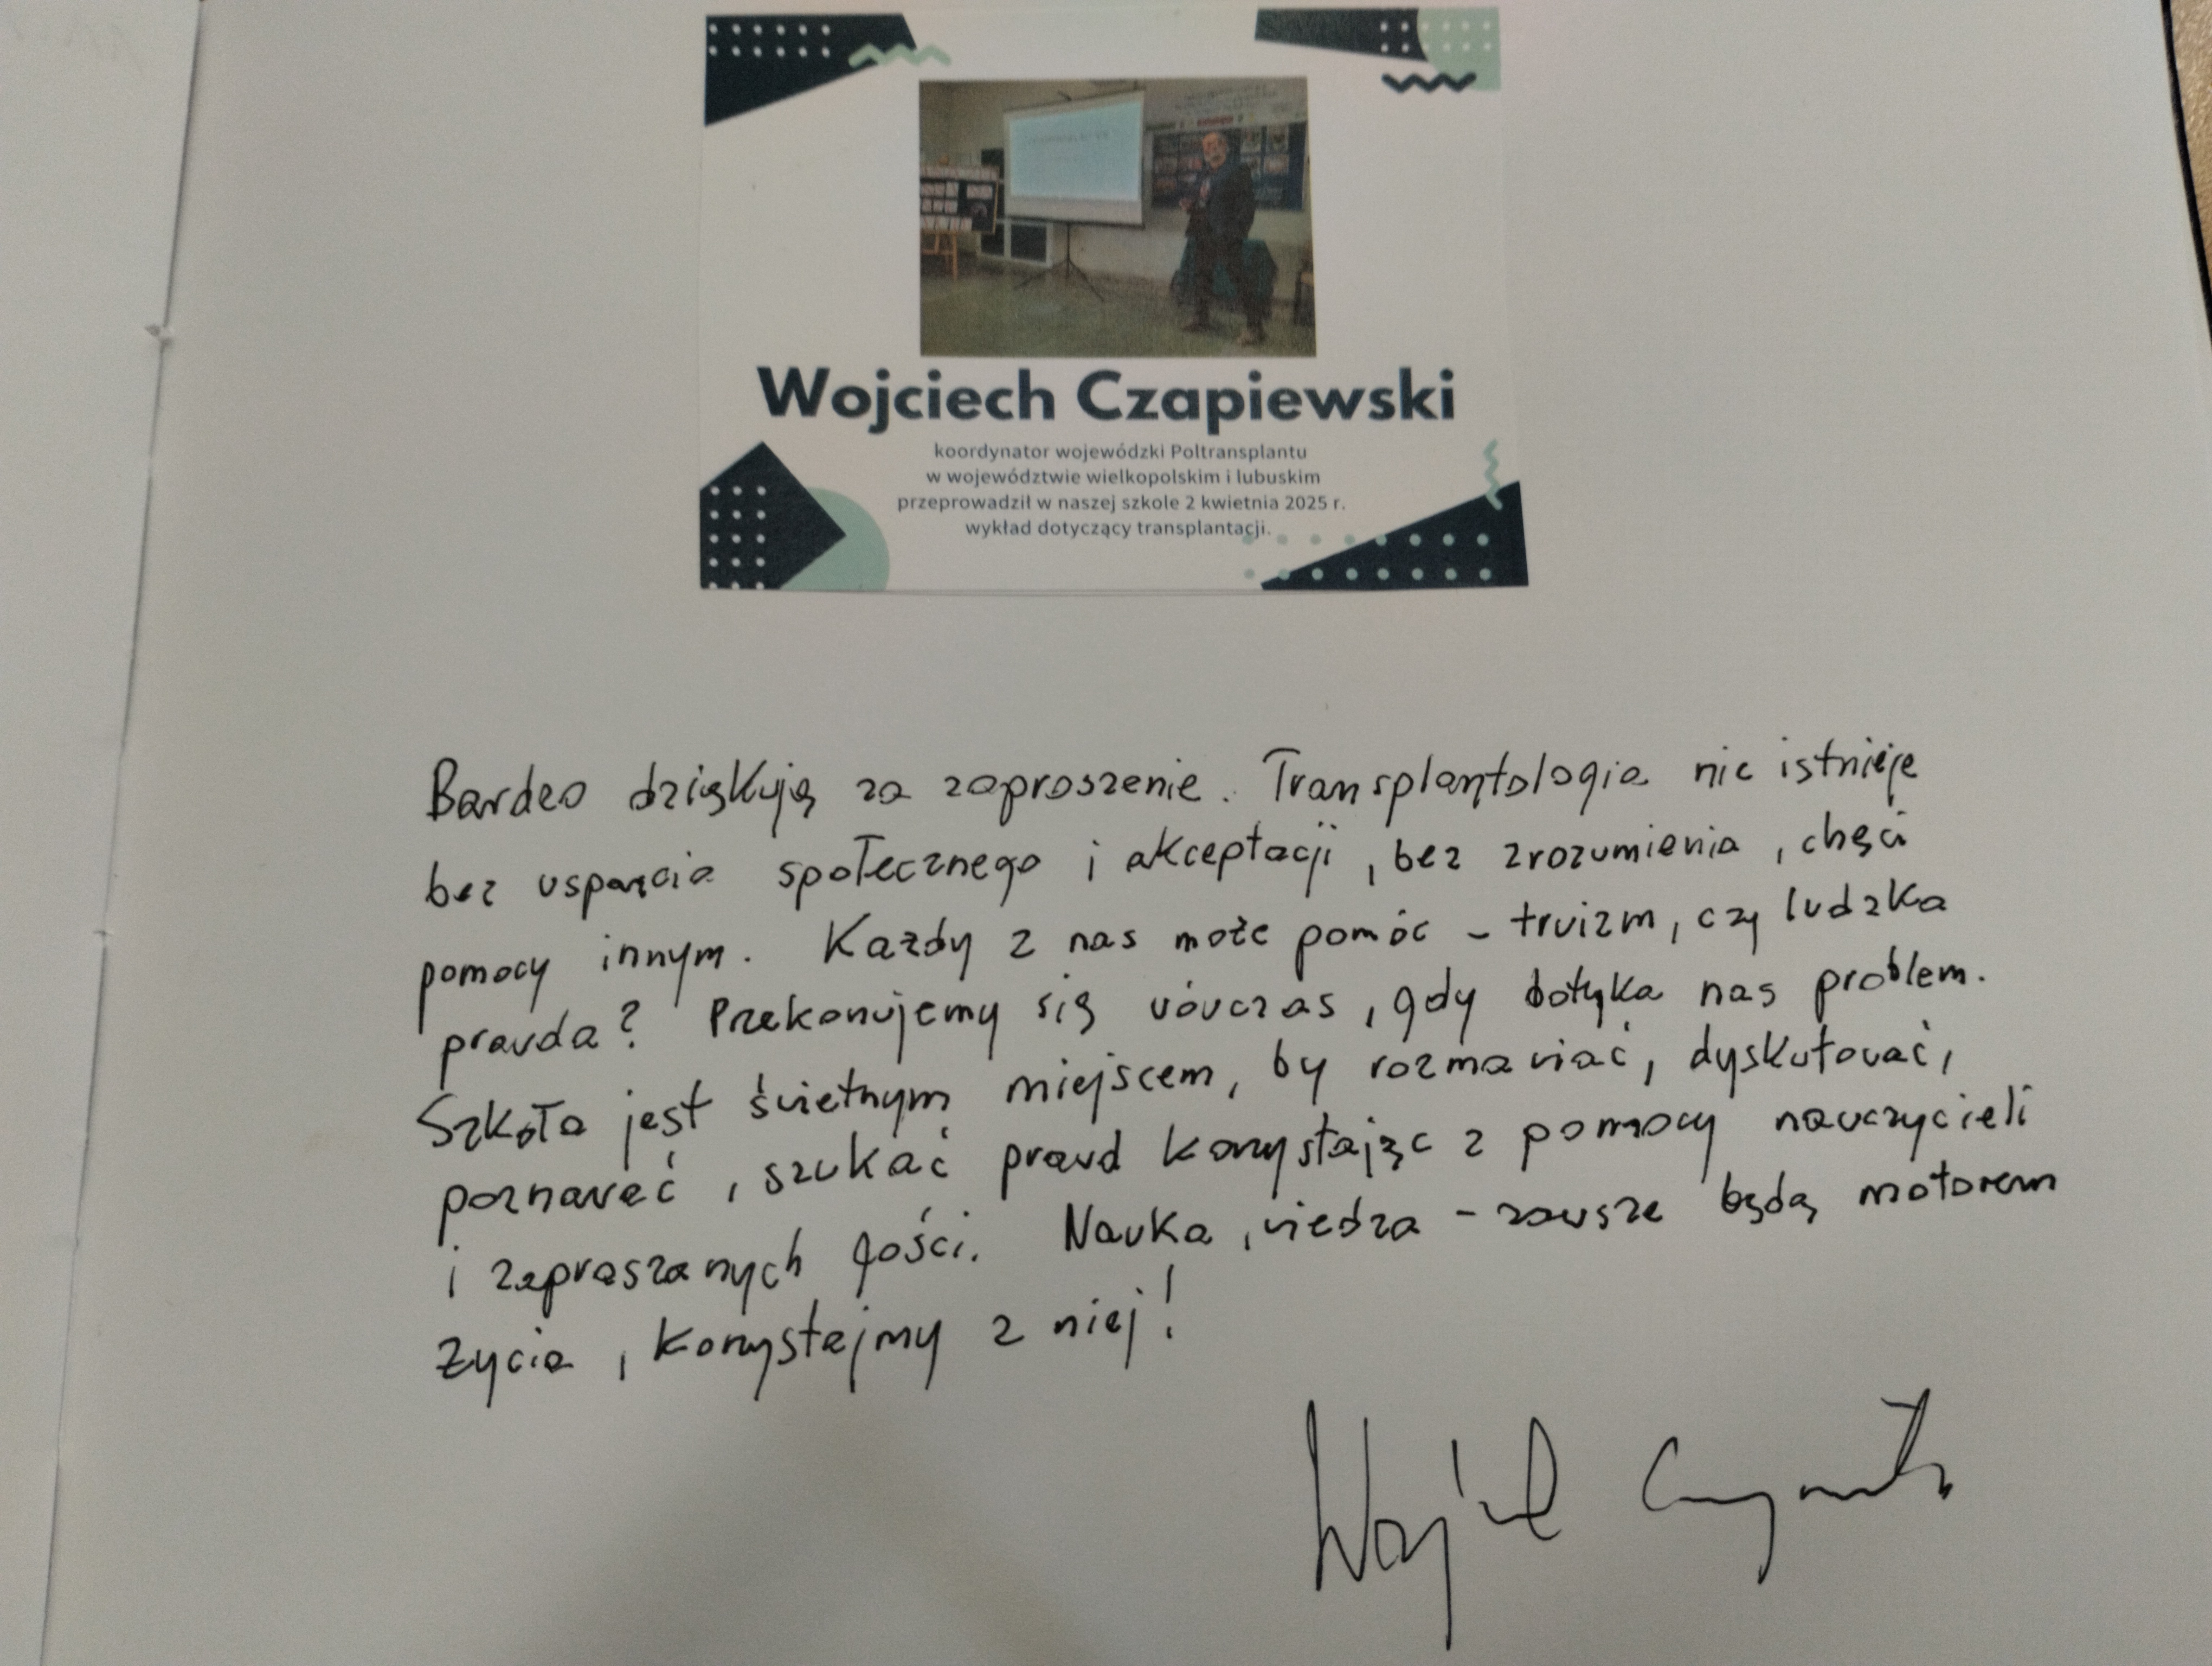 Wojciech Czapiewski
koordynator wojewódzki Poltransplantu
w województwie wielkopolskim i lubuskim
przeprowadził w naszej szkole 2 kwietnia 2025 r.
wykład dotyczący transplantacji.
Bardzo dziękuję za zaproszenie. Transplantologia nie istnieje
bez wsparcia społecznego i akceptacji, bez zrozumienia, chęci
pomocy innym. Każdy z nas może pomóc - truizm, czy ludzka
prawda? Przekonujemy się wówczas, gdy dotyka nas problem.
Szkoła jest świetnym miejscem, by rozmawiać, dyskutować,
poznawać, szukać prawd korzystając z pomocy nauczycieli
i zapraszanych gości. Nauka, wiedza - zawsze będą motorem
życia, korzystajmy z niej!